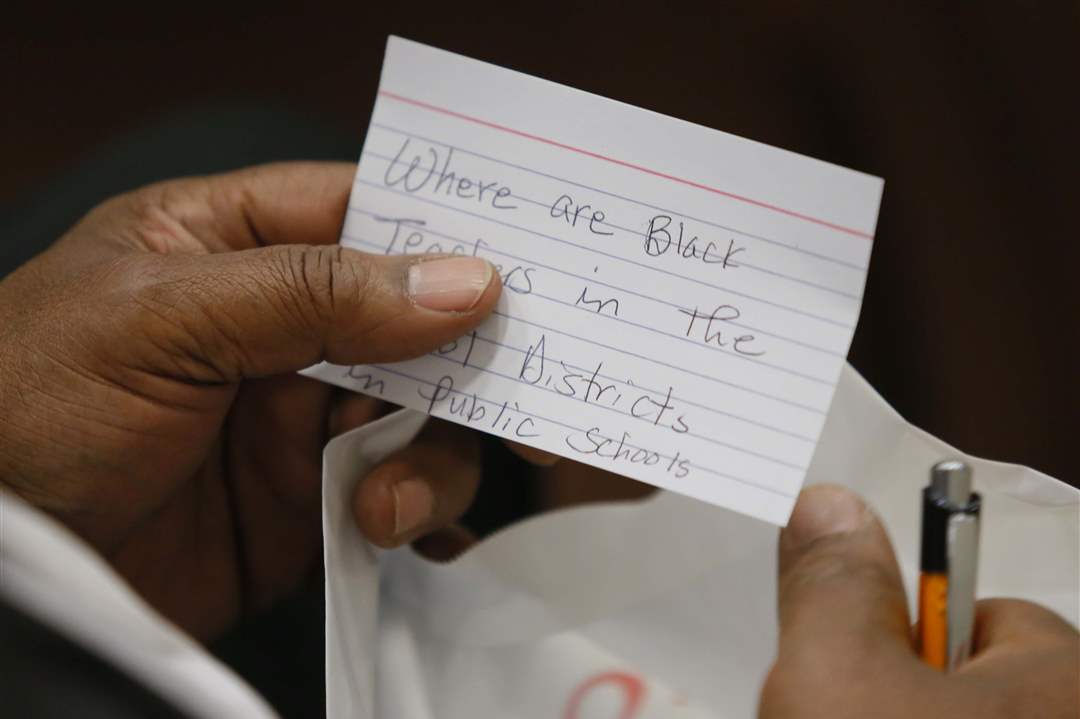 Where are Black
Teachers in the
Districts
in Public Schools